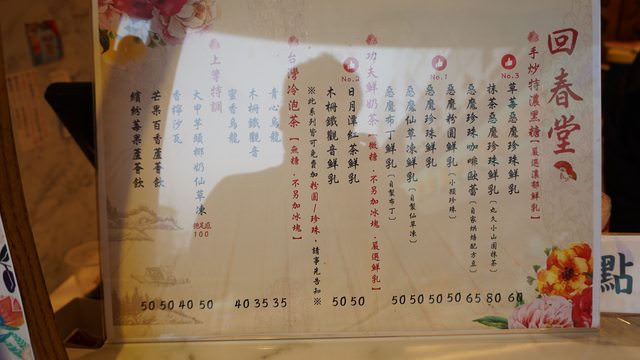 回春堂
手炒特濃黑糖【嚴選濃郁鮮乳】
No.3
草莓惡魔珍珠鮮乳 60
抹茶惡魔珍珠鮮乳【丸久小山園抹茶】 80
惡魔珍珠咖啡歐蕾【自家烘焙配方豆】 65
惡魔粉圓鮮乳【小顆珍珠】 50
No.1
惡魔珍珠鮮乳 50
惡魔仙草凍鮮乳【自製仙草凍】 50
惡魔布丁鮮乳【自製布丁】 50
功夫鮮奶茶【微糖．不另加冰塊．嚴選鮮乳】
No.2
日月潭紅茶鮮乳 50
木柵鐵觀音鮮乳 50
※此系列皆可免費加粉圓/珍珠，請事先告知※
台灣冷泡茶【無糖．不另加冰塊】
青心烏龍 35
木柵鐵觀音 35
蜜香烏龍 40
上等特調
大甲芋頭椰奶仙草凍 50
100
香檸沙瓦 40
芒果百香蘆薈飲 50
繽紛莓果蘆薈飲 50
點